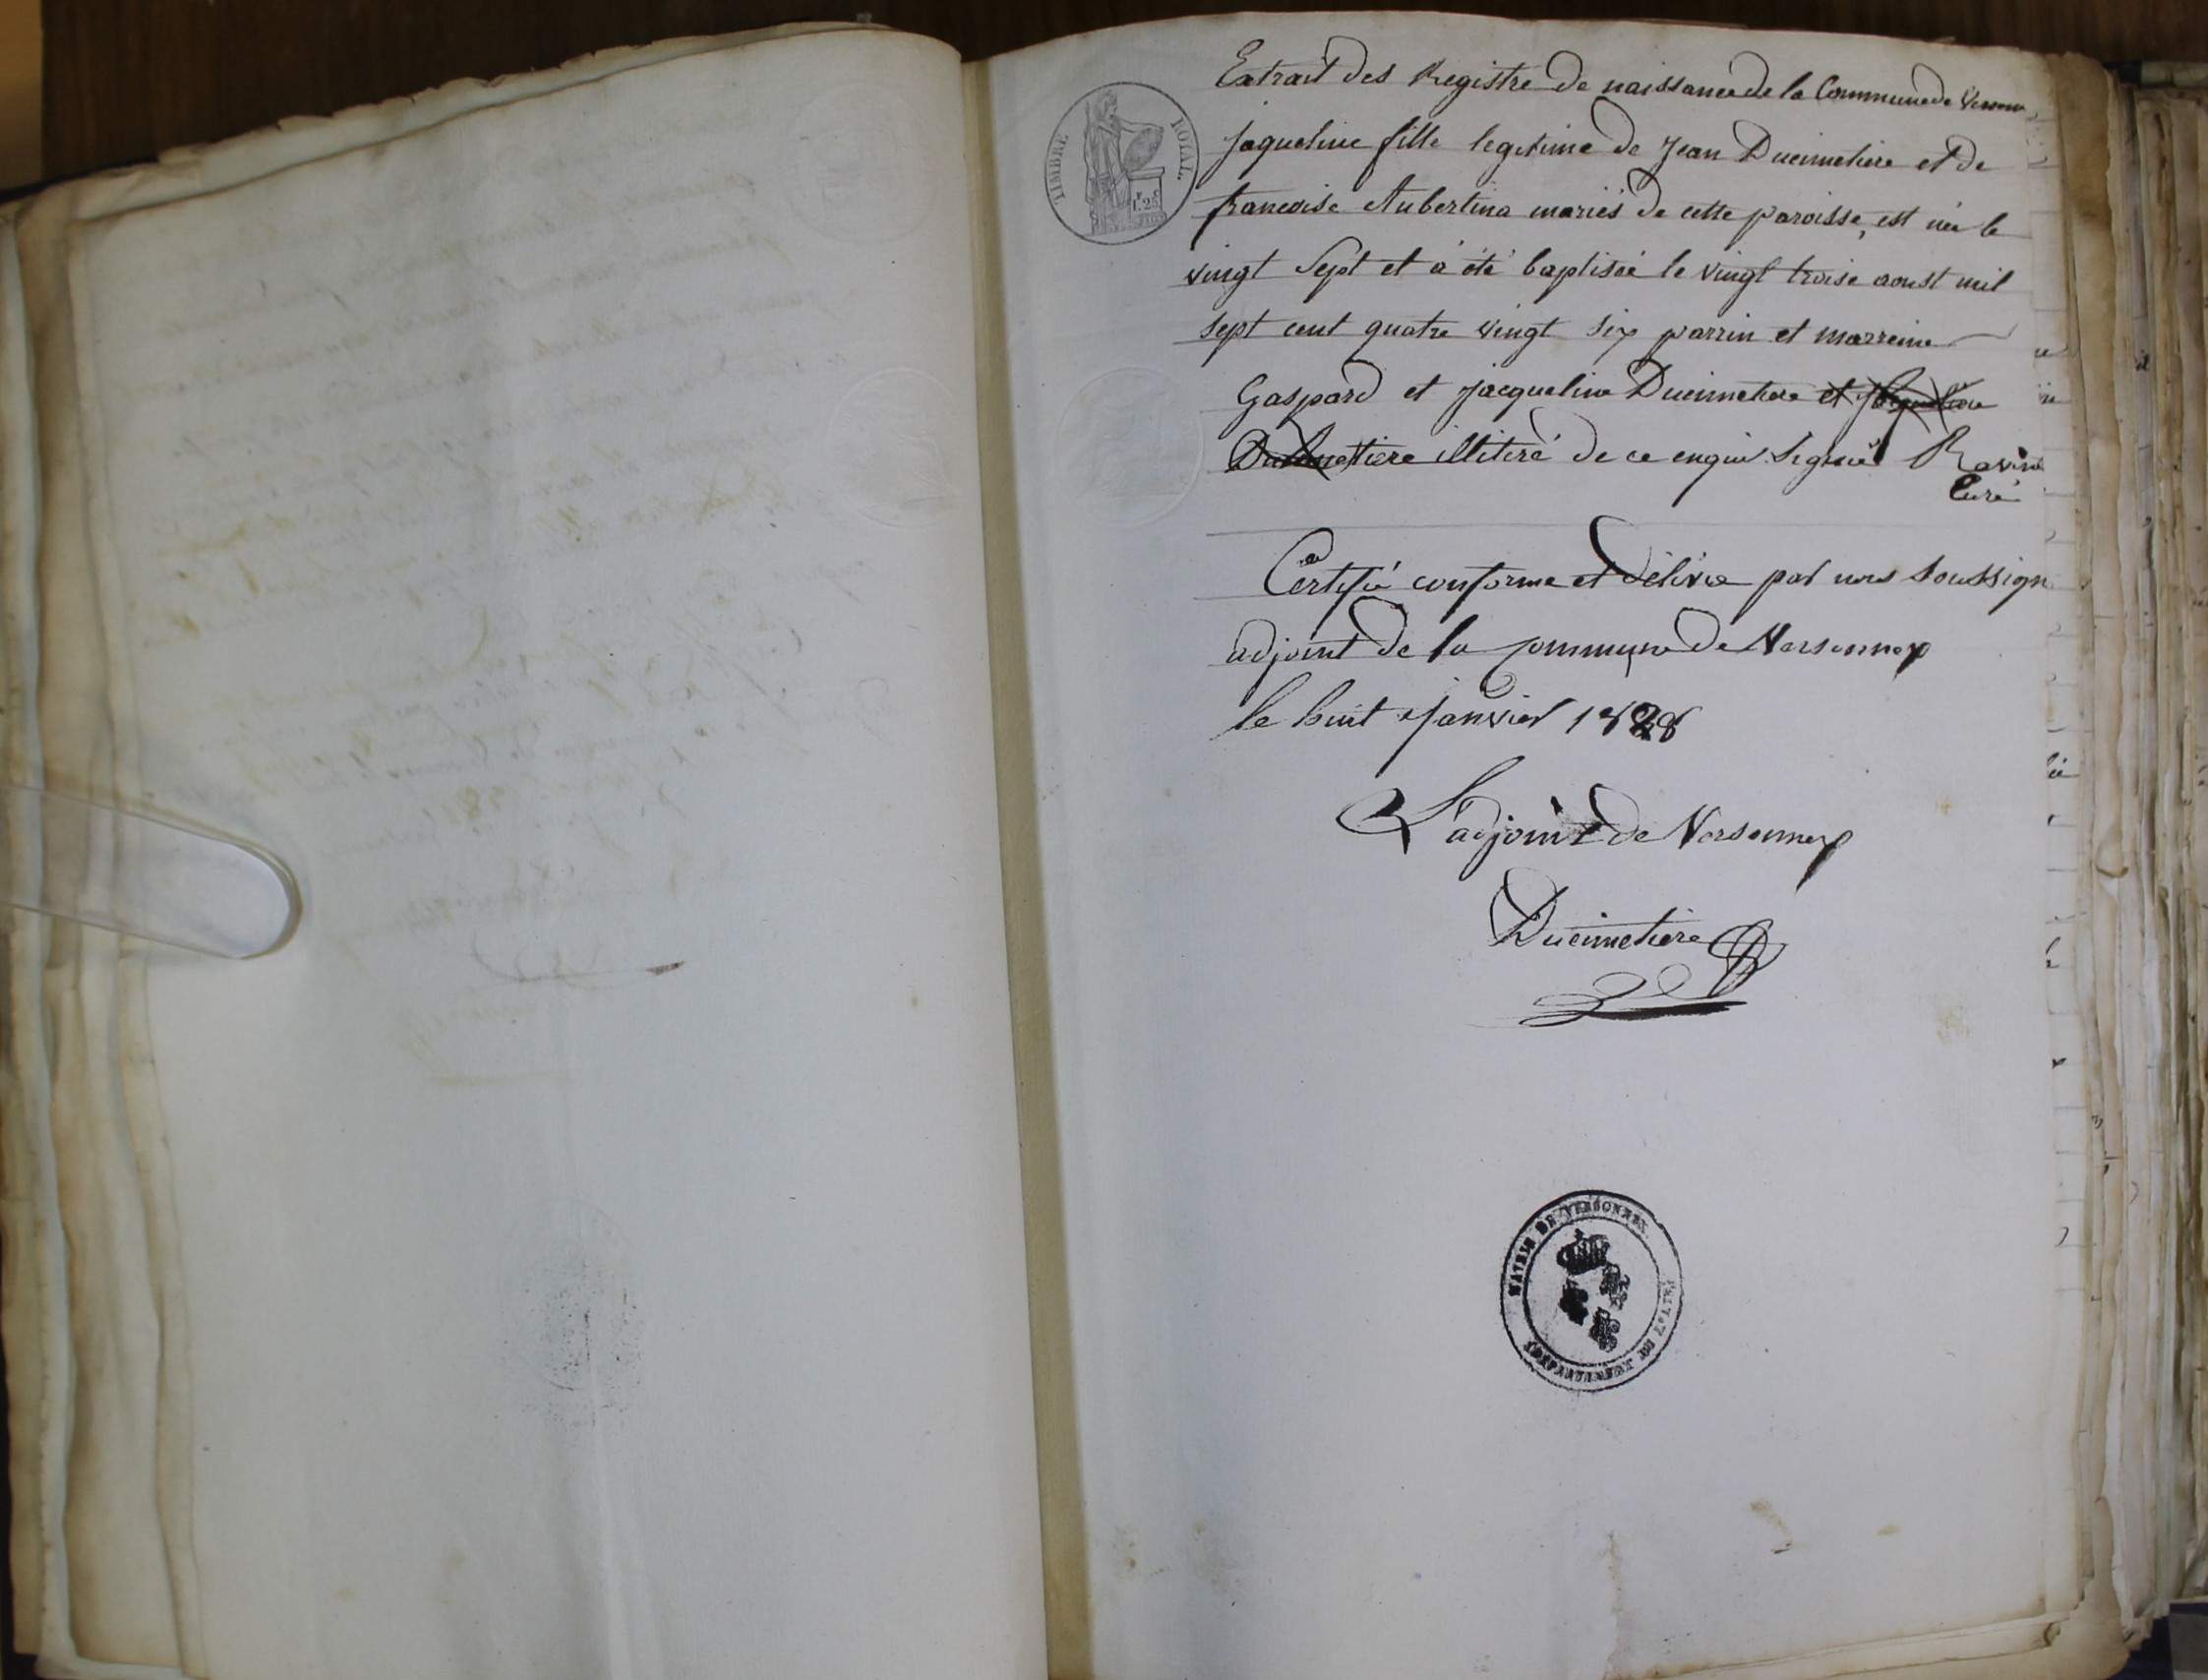 Extrait des Registre de naissance de la Commune de
TIMBRE ROYAL
jaqueline fille legitime de Jean Ducimetiere et de
francoise Aubertina mariés de cette paroisse, est née le
vingt sept et a été baptisée le vingt troise aoust mil
sept cent quatre vingt six parrin et marreine
Gaspard et jacqueline Ducimetiere et jaqueline
Ducimetiere illiteré de ce enquis signé Ravine
Curé
Certifié conforme et délivré par nous soussign
adjoint de la commune de Versonnex
le huit janvier 1828
L'adjoint de Versonnex
Ducimetiere
MAIRIE DE VERSONNEX
DEPARTEMENT DE L'AIN